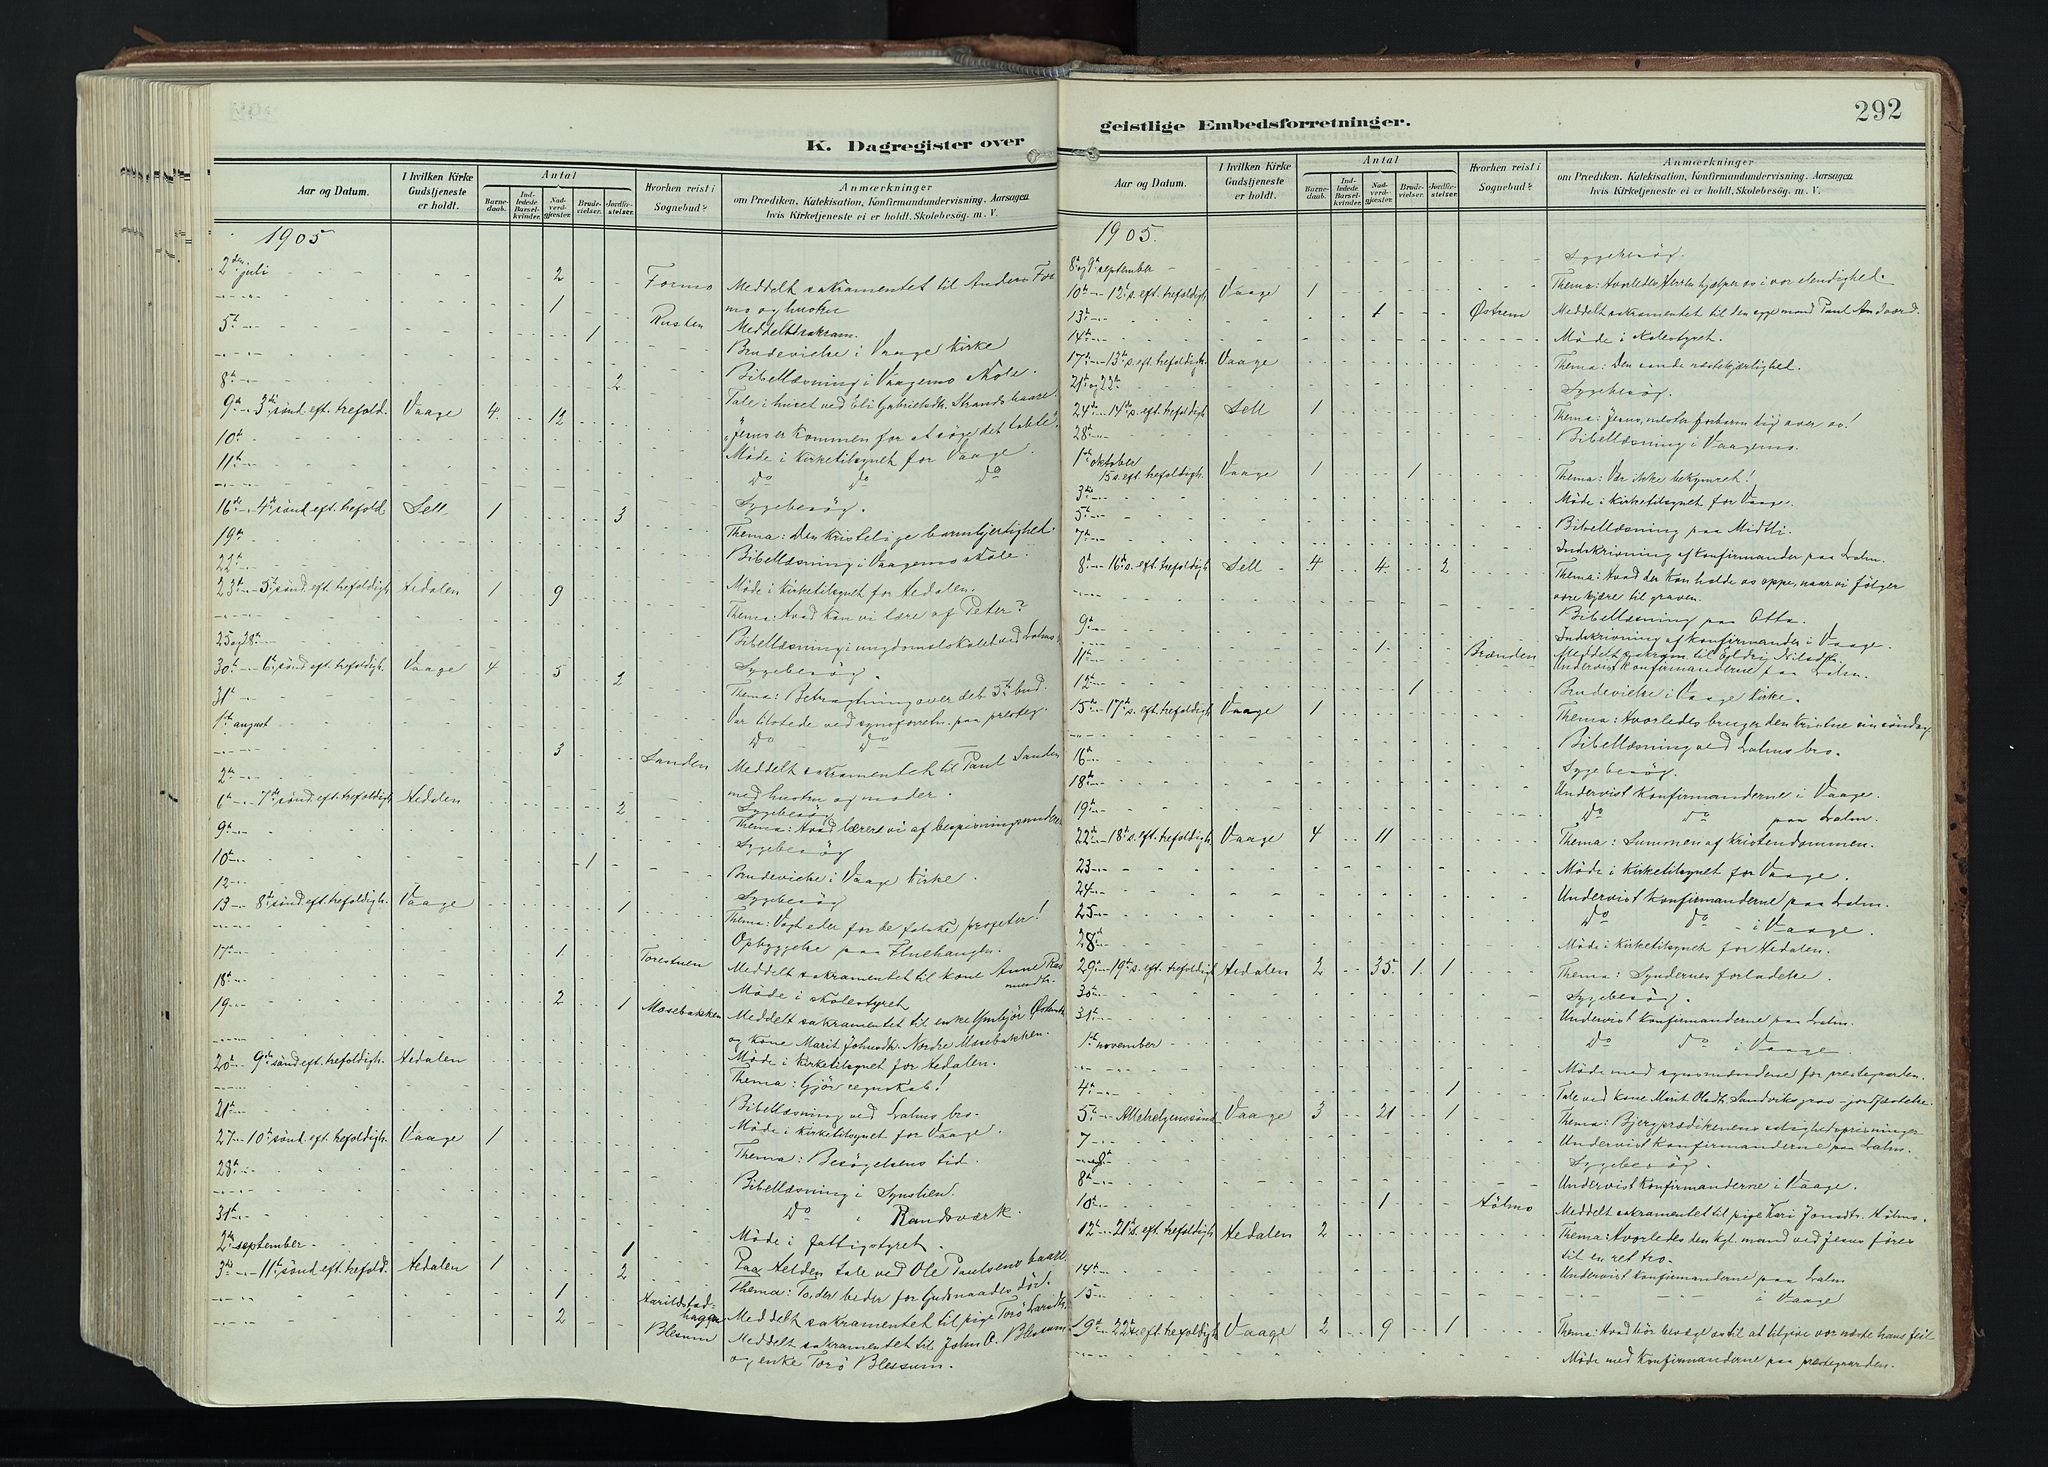 K. Dagregister over
Aar og Datum.
I hvilken Kirke Gudstjeneste er holdt.
Antal
Barnedaab.
Indledede Barselkvinder.
Nadverdgjæster.
Brudevielser.
Jordfæstelser.
Hvorhen reist i Sognebud?
Anmærkninger
om Prædiken, Katekisation, Konfirmandundervisning. Aarsagen
hvis Kirketjeneste ei er holdt. Skolebesög. m. V.
1905
2den juli 2 Formo Meddelt sakramentet til Anders For
mo og hustru
1 Rusten Meddelt sakram.
5te 1 Brudevielse i Vaage Kirke
Bibellæsning i Vaagemo Skole.
8de 2 Tale i huset ved Eli Gabrielsdt. Strandshaare.
9de 3die sønd. eft. trefold. Vaage 4 12 "Jesus er kommen for at søge det tabte".
10de Møde i Kirketilsynet for Vaage.
11te Do Do Do
Sygebesøg.
16de 4de sønd. eft. trefold. Sell 1 3 Thema: Den kristelige barmhjertighed.
19de Bibellæsning i Vaagemo skole.
22de Møde i Kirketilsynet for Hedalen.
23de 5te sønd. eft. trefoldigh. Hedalen 1 9 Thema: Hvad kan vi lære af Peter?
Bibellæsning i ungdomslokalet ved Lalms
25 og 28de Sygebesøg.
30te 6te sønd. eft. trefoldigh. Vaage 4 5 2 Thema: Betragtning over det 5te bud.
31te Var tilstede ved synsforretn. paa presteg.
1ste august Do Do
3 Sanden Meddelt sakramentet til Paul Sanden
med hustru og moder.
2den Sygebesøg
6te 7de sønd. eft. trefoldigh. Hedalen 2 Thema: Hvad lærer vi af bespisningsunderet
9de Sygebesøg
10de 1 Brudevielse i Vaage Kirke.
12 Sygebesøg
13 8de sønd. eft. trefoldigh. Vaage 1 Thema: Vogt eder for de falske profeter!
Opbyggelse paa
17de 1 Meddelt sakramentet til kone Anne Rasmusdt.
18de Møde i skolestyret
19 2 1 Mosebakken Meddelt sakramentet til enke
og kone Marit Johnsdt. Nordre Mosebakken.
Møde i Kirketilsynet for Hedalen.
20 9de sønd. eft. trefoldigh. Hedalen Thema: Gjør regnskab!
Bibellæsning ved Lalms bro.
21de Møde i Kirketilsynet for Vaage.
27 10de sønd. eft. trefoldigh. Vaage 1 Thema: Besøgelsens tid.
28de Bibellæsning i Synstlien.
Do " Randsværk.
31te Møde i fattigstyret.
2den september 1 Paa Helden tale ved Ole Paulsens baare.
3die 11te sønd. eft. trefold. Hedalen 1 2 Thema: Tolder beder for Guds naades dør.
1 Harildstadhagen Meddelt sakramentet til pige Torø Larsdt.
2 Blesum Meddelt sakramentet til John O. Blessum
og enke Torø Blessum.
geistlige Embedsforretninger.
292
Aar og Datum.
I hvilken Kirke Gudstjeneste er holdt.
Antal
Barnedaab.
Indledede Barselkvinder.
Nadverdgjæster.
Brudevielser.
Jordfæstelser.
Hvorhen reist i Sognebud?
Anmærkninger
om Prædiken, Katekisation, Konfirmandundervisning. Aarsagen
hvis Kirketjeneste ei er holdt. Skolebesög. m. V.
1905.
8de og 9de september Sygebesøg.
10de 12te s. eft. trefoldigh. Vaage 1 Thema: Hvorledes Herren hjælper os i vor elendighed.
13de 1 Østrem Meddelt sakramentet til den syge mand Paul Andvord.
14de Møde i skolestyret.
17de 13de s. eft. trefoldigh. Vaage Thema: Den sande næstekjærlighed.
21de og 22de Sygebesøg.
24de 14de s. eft. trefoldigh. Sell 1 Thema: Jesus, mester forbarm dig over os!
28de Bibellæsning i Vaagemo.
1ste oktober 15 s. eft. trefoldigh. Vaage 1 1 Thema: Vær ikke bekymret!
3die Møde i Kirketilsynet for Vaage.
5te Bibellæsning paa Midtli.
7de Indskrivning af Konfirmander paa Lalm.
8de 16de s. eft. trefoldigh. Sell 4 4 2 Thema: Hvad der kan holde os oppe, naar vi følger
vore kjære til graven.
Bibellæsning paa Otta.
9de Indskrivning af Konfirmander i Vaage.
11te 1 Brænden Meddelt sakram. til Eldri Nilsdt.
Undervist Konfirmanderne paa Lalm.
12te 1 Brudevielse i Vaage Kirke.
15de 17de s. eft. trefoldigh. Vaage 1 Thema: Hvorledes bruger den kristne sin søndag
Bibellæsning ved Lalms bro.
16de Sygebesøg.
18de Undervist Konfirmanderne i Vaage.
19de Do Do paa Lalm.
22de 18de s. eft. trefoldigh. Vaage 4 11 Thema: Summen af Kristendommen.
23 Møde i Kirketilsynet for Vaage.
24 Undervist Konfirmanderne paa Lalm.
25 Do Do i Vaage.
28de Møde i Kirketilsynet for Hedalen.
29de 19de s. eft. trefoldigh. Hedalen 2 35 1 1 Thema: Syndernes forladelse.
30te Sygebesøg.
31te Undervist Konfirmanderne paa Lalm.
1ste november Do Do i Vaage.
Møde med synsmændene for prestegaarden.
4de 1 Tale ved kone Marit Olsdt. Sandviks grav - jordfæstelse.
5te Allehelgenssønd. Vaage 3 21 1 Thema: Bjergprædikenens salighedsprisninger
7 Undervist Konfirmanderne paa Lalm.
Sygebesøg.
8de Undervist Konfirmanderne i Vaage.
10de 1 Hølmo Meddelt sakramentet til pige Kari Jonsdt. Hølmo.
12te 21de s. eft. trefoldigh. Hedalen 2 Thema: Hvorledes den kgl. mand ved Jesus føres
til en ret tro.
14de Undervist Konfirmanderne paa Lalm
15 i Vaage
19de 22de s. eft. trefoldigh. Vaage 2 9 1 Thema: Hvad bør bevæge os til at tilgive vor næste hans feil
Møde med Konfirmanderne paa prestegaarden.